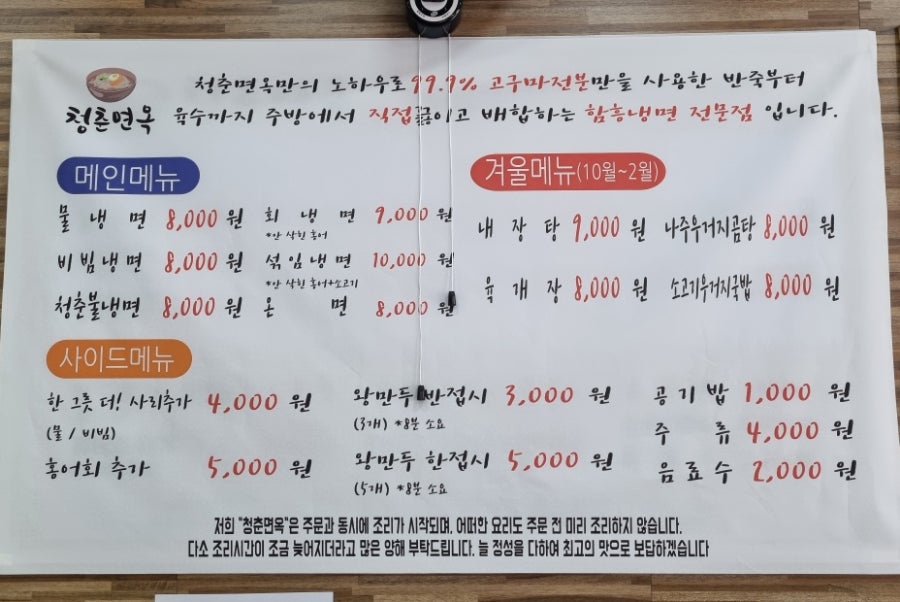 청춘면옥만의 노하우로 99.9% 고구마전분만을 사용한 반죽부터
청춘면옥 육수까지 주방에서 직접 끓이고 배합하는 함흥냉면 전문점 입니다.
메인메뉴
물냉면 8,000 원 회냉면 9,000 원
*안 삭힌 홍어
비빔냉면 8,000 원 섞임냉면 10,000 원
*안 삭힌 홍어+소고기
청춘불냉면 8,000 원 온면 8,000 원
겨울메뉴(10월~2월)
내장탕 9,000 원 나주우거지곰탕 8,000 원
육개장 8,000 원 소고기우거지국밥 8,000 원
사이드메뉴
한 그릇 더! 사리추가 4,000 원 왕만두 반접시 3,000 원 공기밥 1,000 원
(물 / 비빔) (3개) *8분 소요
주류 4,000 원
홍어회 추가 5,000 원 왕만두 한접시 5,000 원 음료수 2,000 원
(5개) *8분 소요
저희 "청춘면옥"은 주문과 동시에 조리가 시작되며, 어떠한 요리도 주문 전 미리 조리하지 않습니다.
다소 조리시간이 조금 늦어지더라고 많은 양해 부탁드립니다. 늘 정성을 다하여 최고의 맛으로 보답하겠습니다